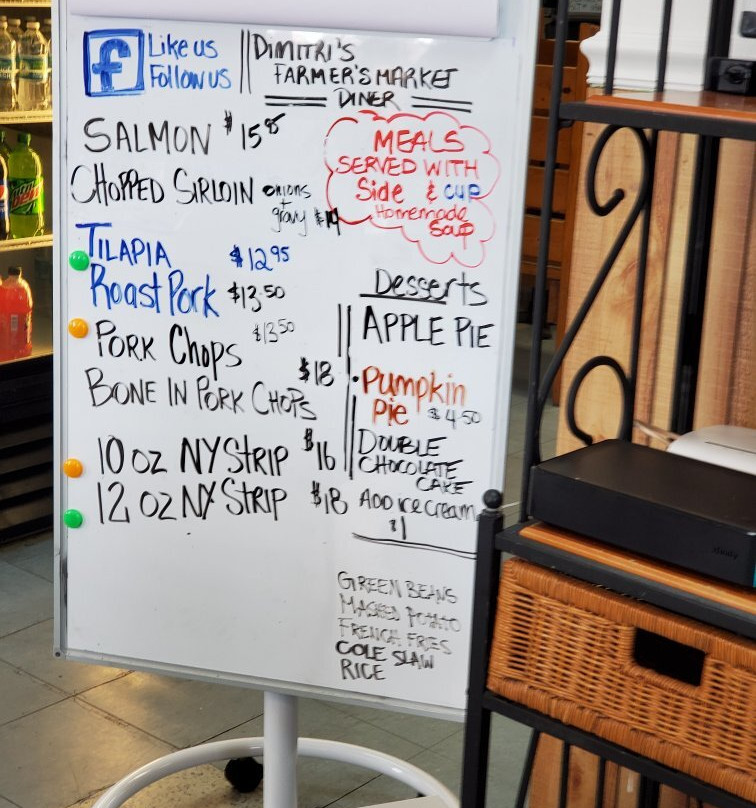 f
Like us
Follow us
DIMITRI'S
FARMER'S MARKET
DINER
SALMON $15
CHOPPED SIRLOIN onions
+
gravy $14
MEALS
SERVED WITH
Side & CUP
Homemade
Soup
TILAPIA $12 95
Roast Pork $13.50
PORK Chops $13 50
BONE IN PORK CHOPS $18
10 oz NY Strip $16
12 oz NY Strip $18
Desserts
APPLE PIE
• Pumpkin
Pie $4.50
DOUBLE
CHOCOLATE
CAKE
ADD ice cream
$1
GREEN BEANS
MASHED POTATO
FRENCH FRIES
COLE SLAW
RICE